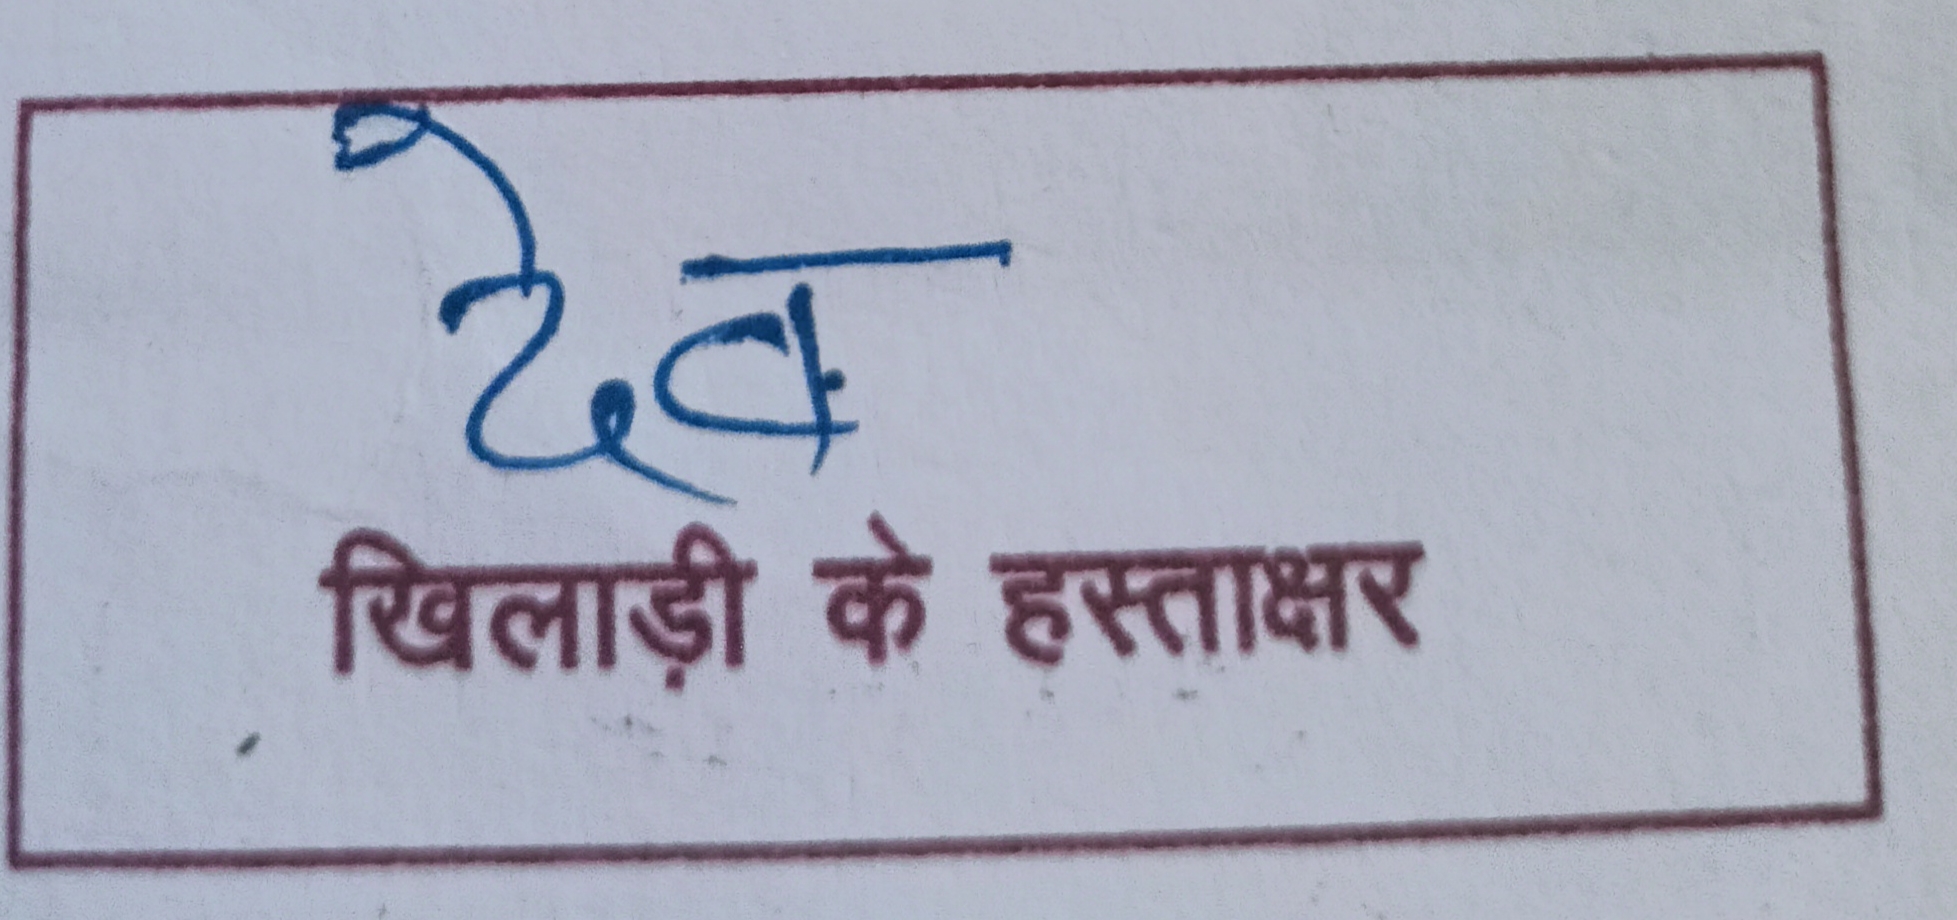 देव
खिलाड़ी के हस्ताक्षर